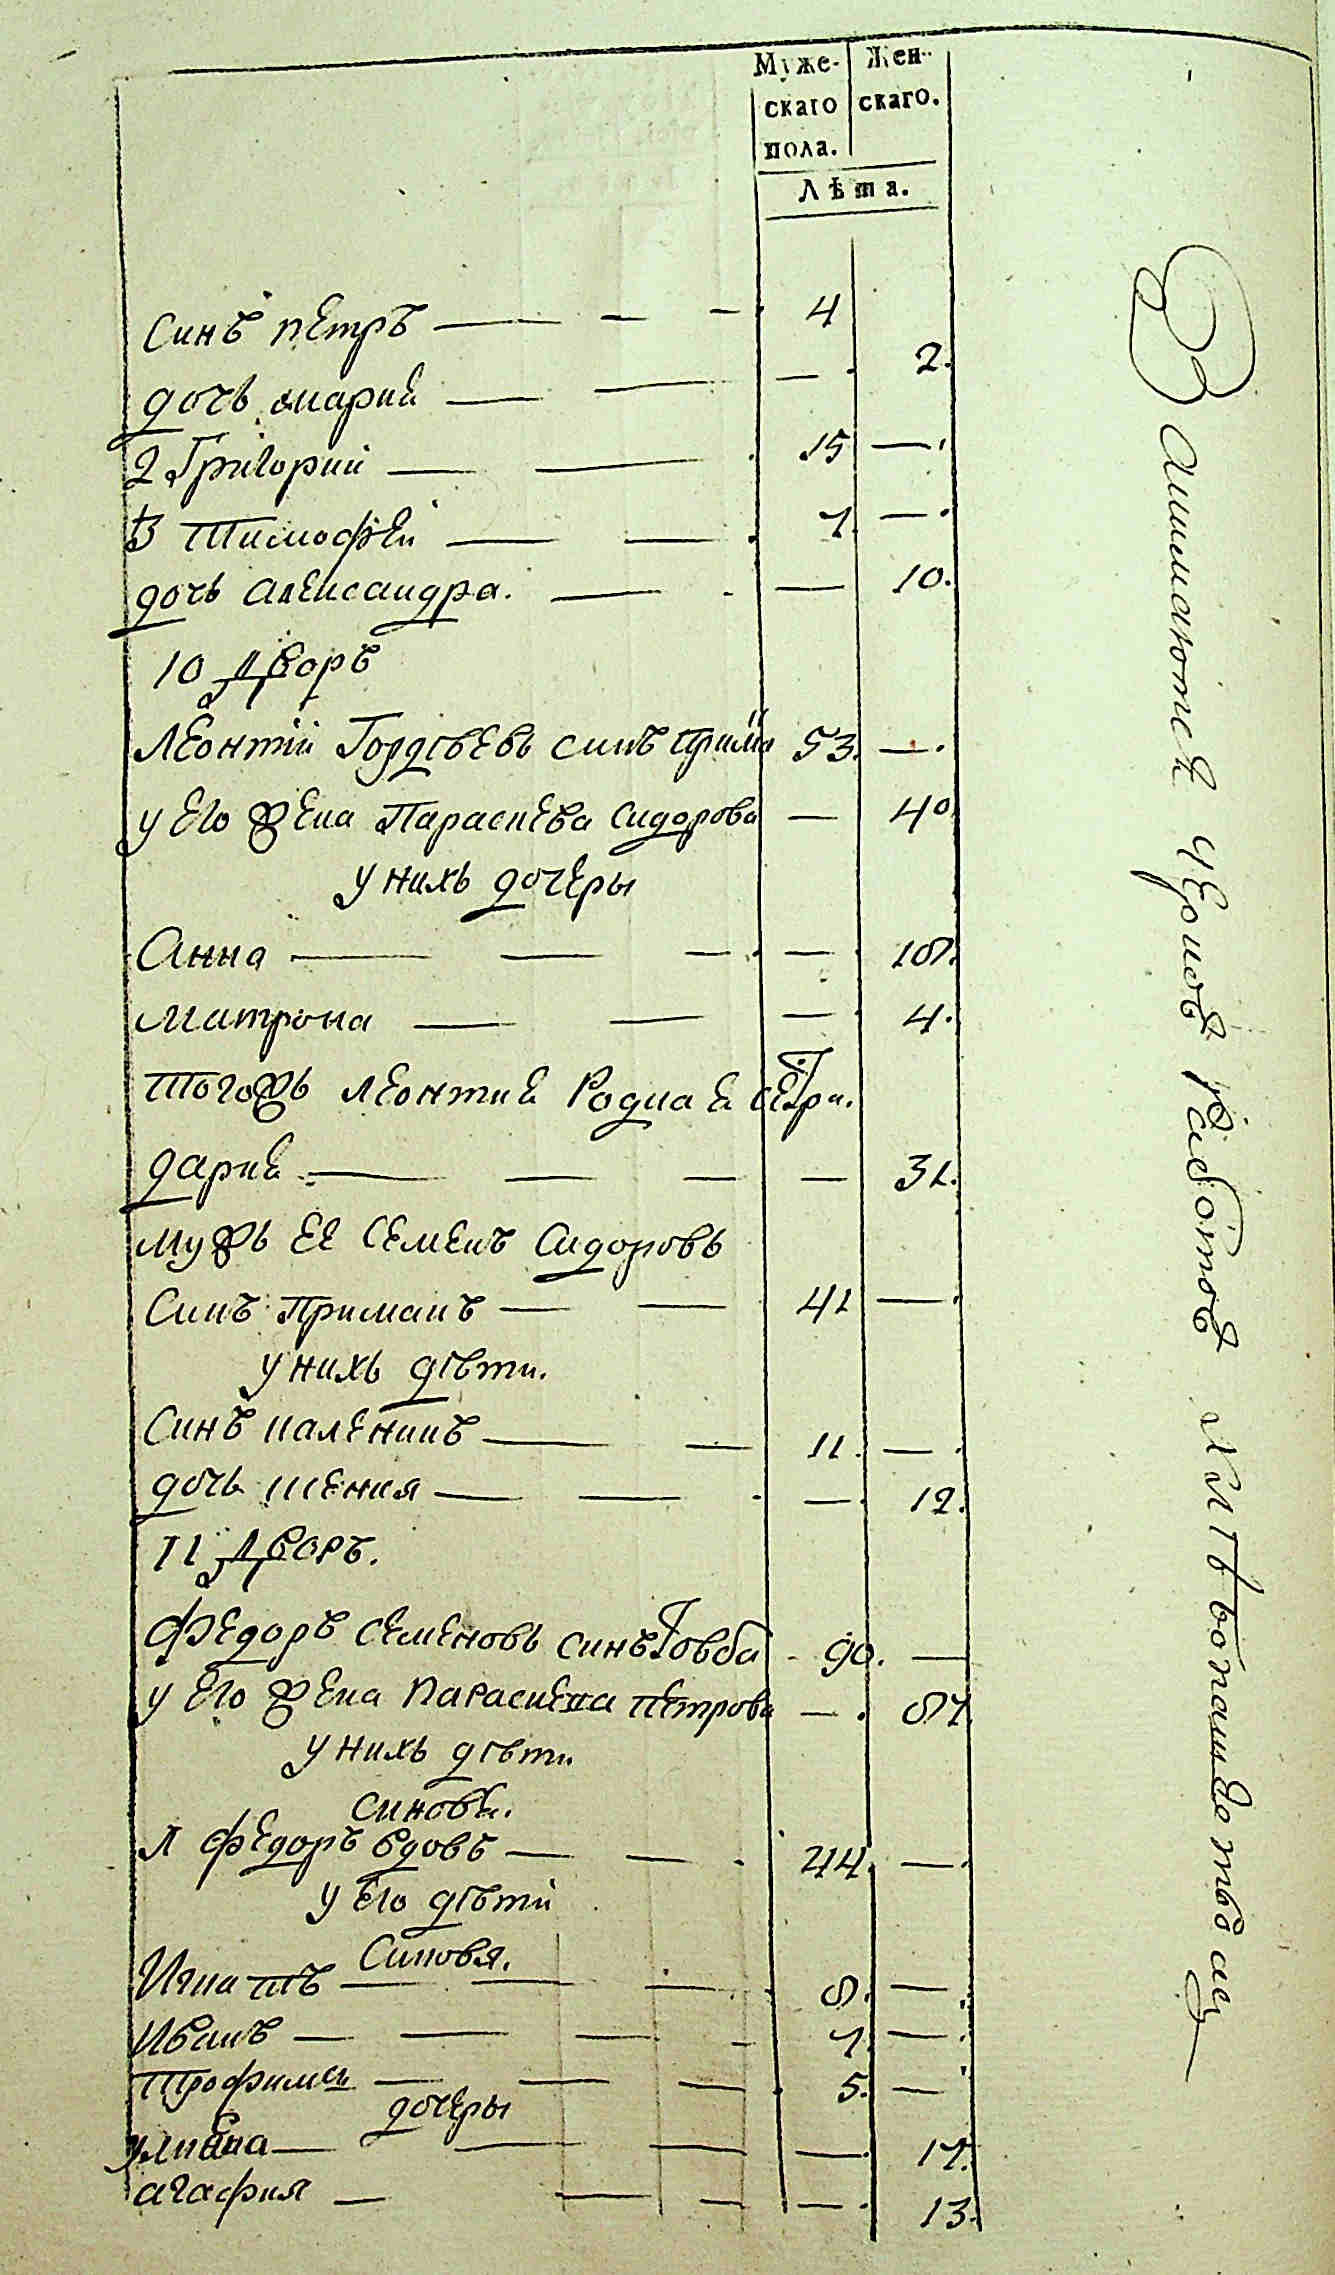 Муже-
скаго
пола.
Жен-
скаго.
Лѣта.
Синъ Петръ — — — 4
дочь мария — — — 2.
2 Григорий — — 15 —
3 Тимофей — — 7 —
дочь александра. — — 10.
10 Дворъ
Леонтий Гордѣевъ синъ 53. —
у его жена Параскева Сидорова — 40
у нихъ дочеры
Анна — — — — 18.
матрона — — — 4.
Тогожъ леонтия Родная
дария — — — — 31.
мужъ ее Семенъ Сидоровъ
Синъ Приманъ — — 41 —
у нихъ дѣти.
Синъ — — 11. —
дочь — — — 12.
11 Дворъ.
Федоръ Семеновъ синъ Довба 90. —
у его жена Параскева Петрова — 87
у нихъ дѣти
синовя.
1 Федоръ вдовъ — — 44. —
у его дѣти
Синовя.
Игнатъ — — — 8. —
Иванъ — — — — 7. —
Трофимъ — — — 5. —
дочеры
улияна — — — — 17.
агафия — — — — 13.
Занимаются черною работою